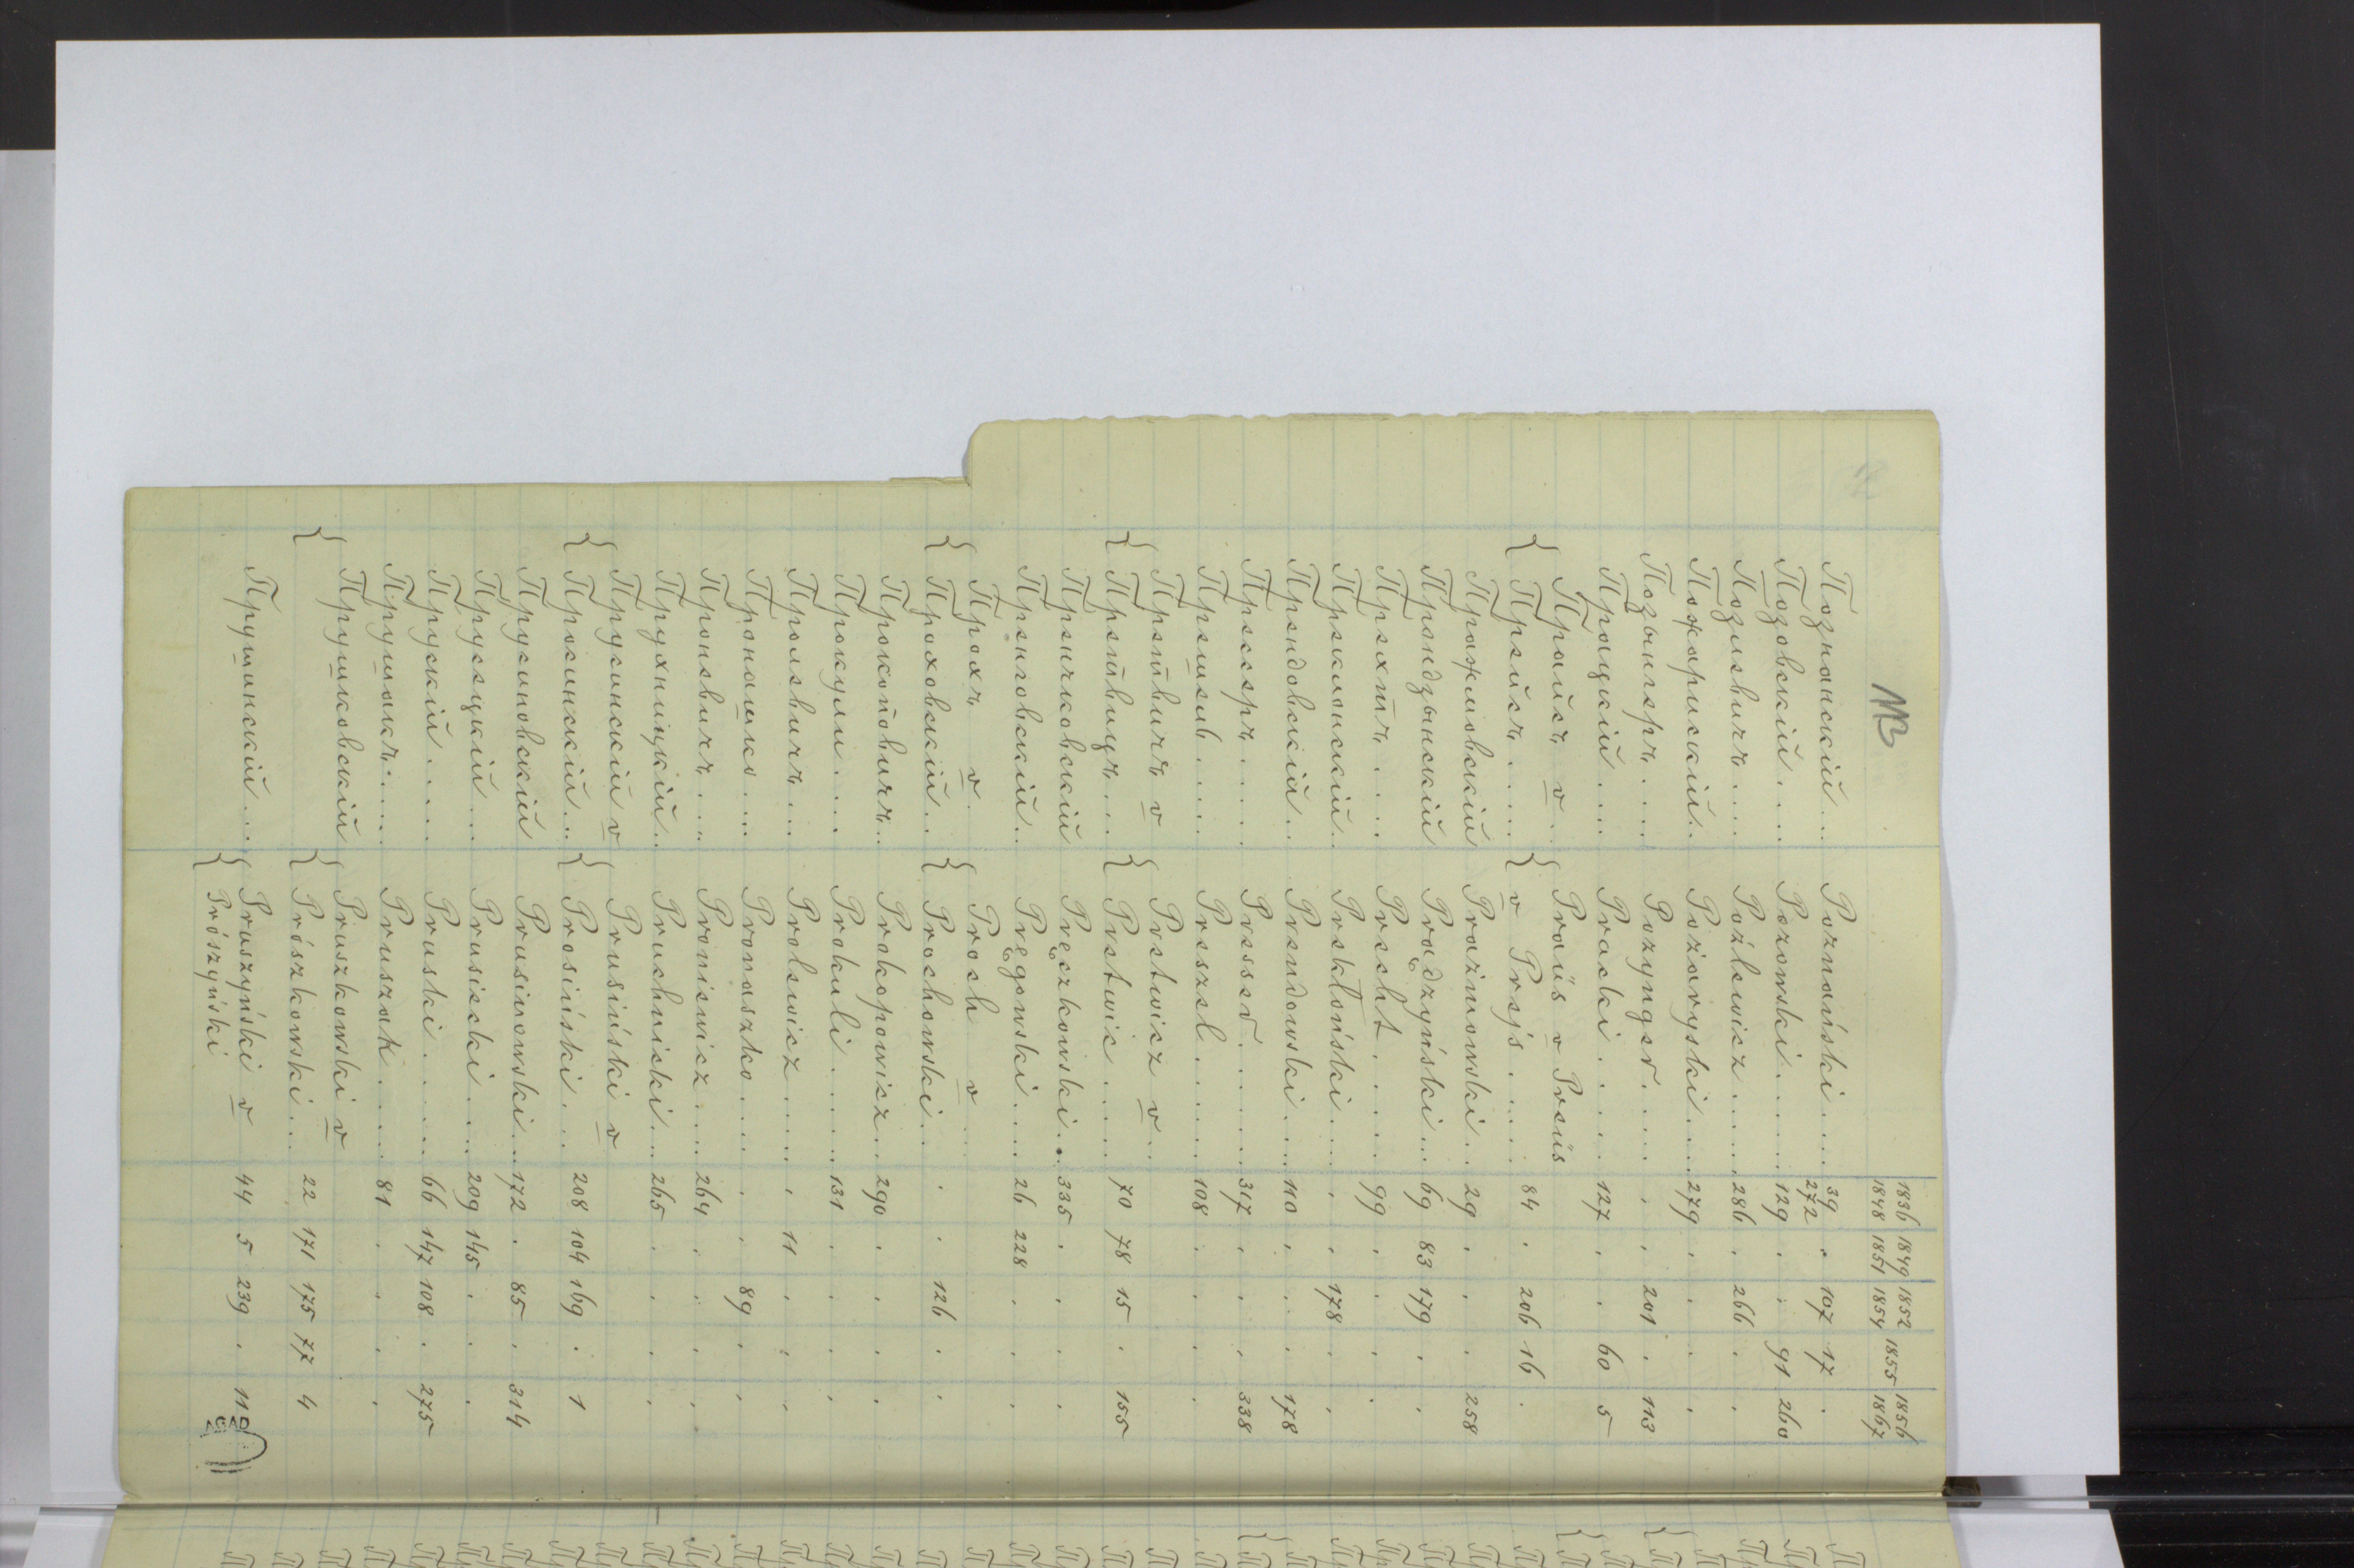 113
1836 1849 1852 1855 1856
1848 1851 1854 1867
Познанскій... Poznański.... 39 . 107 17 .
272
Позовскій.... Pozowski...... 129 . . 91 260
Позлевичъ.... Poźlewicz..... 286 . 266 . .
Пожарискій.. Pożaryski.... 279 . . . .
Позынгеръ.... Pozynger..... . . 201 . 113
Працкій.... Pracki..... 127 . . 60 5
Праусъ v.. Praüs v Preüs
{ Прейсъ.... { v Prejs..... 84 . 206 16 .
Пражмовскій Prażmowski.. 29 . . . 258
Прондзынскій Prądzyński... 69 83 179 . .
Прехтъ.... Precht..... 99 . . . .
Преклонскій.. Prekłoński.... . . 178 . .
Прендовскій.. Prendowski.... 110 . . . 178
Прессеръ..... Presser...... 317 . . . 338
Прешель..... Preszel...... 108 . . . .
Претвичъ v Pretwicz v..
{ Претвицъ.... { Pretwic..... 70 78 15 . 155
Пренчковскій Pręczkowski... 335 . . . .
Пренговскій.. Pręgowski.... 26 228 . . .
Прохъ v. Proch v
{ Проховскій.. { Prochowski... . . 126 . .
Прокоповичъ.. Prokopowicz... 290 . . . .
Прокули.... Prokuli...... 131 . . . .
Пролевичъ.... Prolewicz..... . 11 . . .
Пронашко.... Pronaszko..... . . 89 . .
Проневичъ.... Proniewicz.... 264 . . . .
Прухницкій.. Pruchnicki... 265 . . . .
Прусинскій v Prusiński v
{ Просинскій... { Prosiński.... 208 104 169 . 1
Прусиновскій Prusinowski... 172 . 85 . 314
Прусецкій.... Prusiecki..... 209 145 . . .
Прускій..... Pruski....... 66 147 108 . 275
Прушакъ..... Pruszak....... 81 . . . .
Прушковскій Pruszkowski v
{ { Prószkowski... 22 171 175 77 4
Прушинскій... Pruszyński v 44 5 239 . 11
{ Prószyński